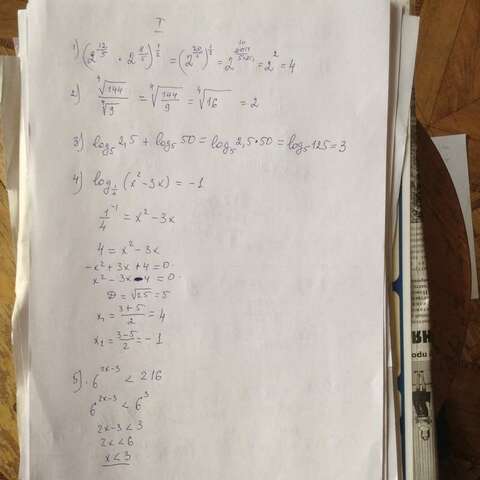 I
1) (2^{12/5} · 2^{8/5})^{1/2} = (2^{20/5})^{1/2} = 2 = 2^2 = 4
2) ∜144 / ∜9 = ∜(144/9) = ∜16 = 2
3) log₅ 2,5 + log₅ 50 = log₅ 2,5•50 = log₅ 125 = 3
4) log_{1/4} (x² - 3x) = -1
1/4^{-1} = x² - 3x
4 = x² - 3x
-x² + 3x + 4 = 0
x² - 3x - 4 = 0
D = √25 = 5
x₁ = (3+5)/2 = 4
x₂ = (3-5)/2 = -1
5) 6^{2x-3} < 216
6^{2x-3} < 6^3
2x-3 < 3
2x < 6
x < 3